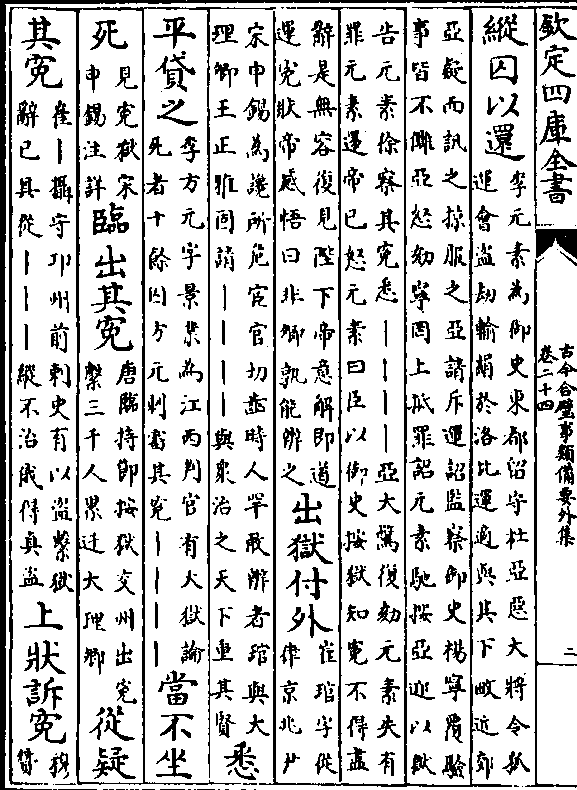 欽定四庫全書
古今合璧事類備要外集
卷二十四
二
縱囚以還
李元素為御史東都留守杜亞惡大將令狐
運會盜劫輸絹於洛北運適與其下畋近郊
亞疑而訊之掠服之亞請斥運詔監察御史楊寧覆驗
事皆不讎亞怒劾寧罔上抵罪詔元素馳按亞迎以獄
告元素徐察其冤悉||||亞大驚復劾元素失有
罪元素還帝已怒元素曰臣以御史按獄知冤不得盡
辭是無容復見陛下帝意解即道
運冤狀帝感悟曰非卿孰能辨之
出獄付外
崔琯字從
律京兆尹
宋申錫為讒所危宦官切齒時人罕敢辨者琯與大
理卿王正雅固請||||與衆治之天下重其賢
悉
平貸之
李方元字景業為江西判官有大獄論
死者十餘囚方元刺審其冤||||
當不坐
死
見冤獄宋
申錫注詳
臨出其冤
唐臨持節按獄交州出冤
繫三千人累迁大理卿
從疑
其冤
崔|攝守邛州前刺史有以盜繫獄
辭已具從|||縱不治俄得真盜
上狀訴冤
穆